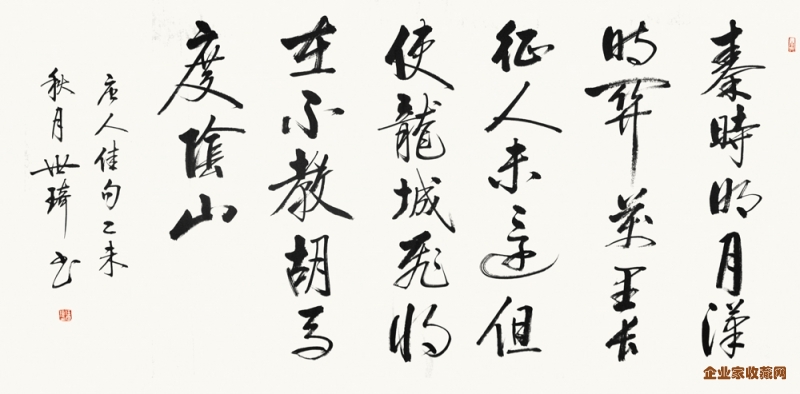 秦時明月漢
時關萬里長
征人未還但
使龍城飛將
在不教胡馬
度陰山
唐人佳句乙未
秋月世琦书
企业家收藏网